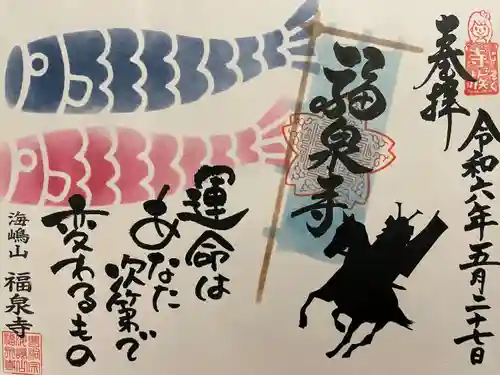 奉拝
令和六年五月二十七日
福泉寺
運命は
あなた
次第で
変わるもの
海嶋山 福泉寺